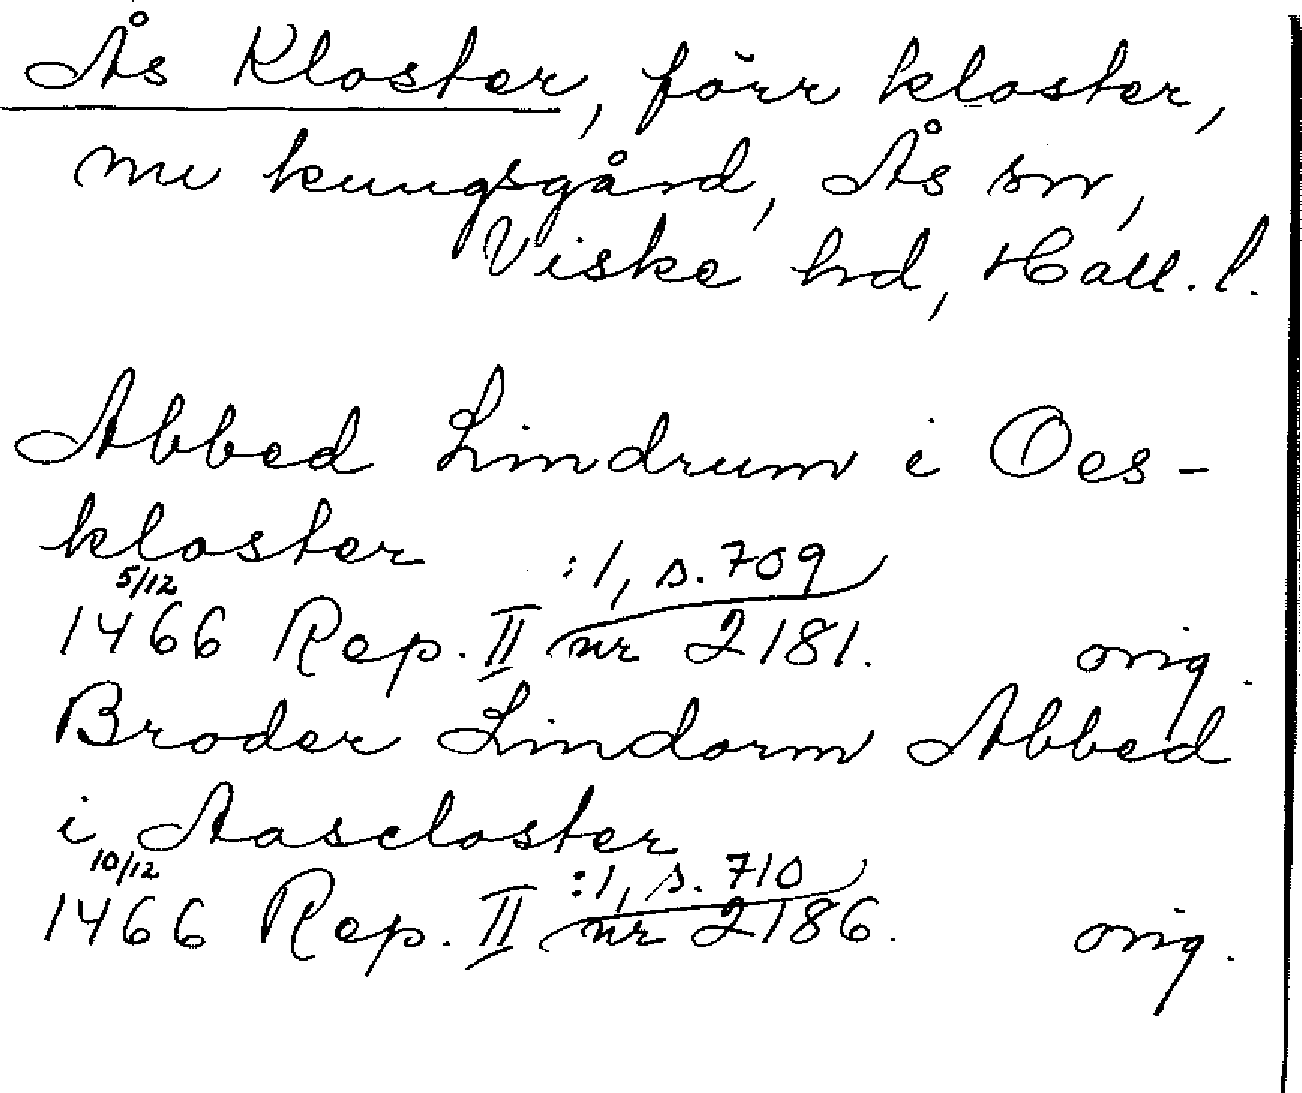 Ås Kloster, förr kloster,
nu kungsgård, Ås sn,
Viske hd, Hall. l.
Abbed Lindrum i Oes-
kloster
5/12 :1, s. 709
1466 Rep. II nr 2181. orig.
Broder Lindorm Abbed
i Aascloster
10/12 :1, s. 710
1466 Rep. II nr 2186. orig.